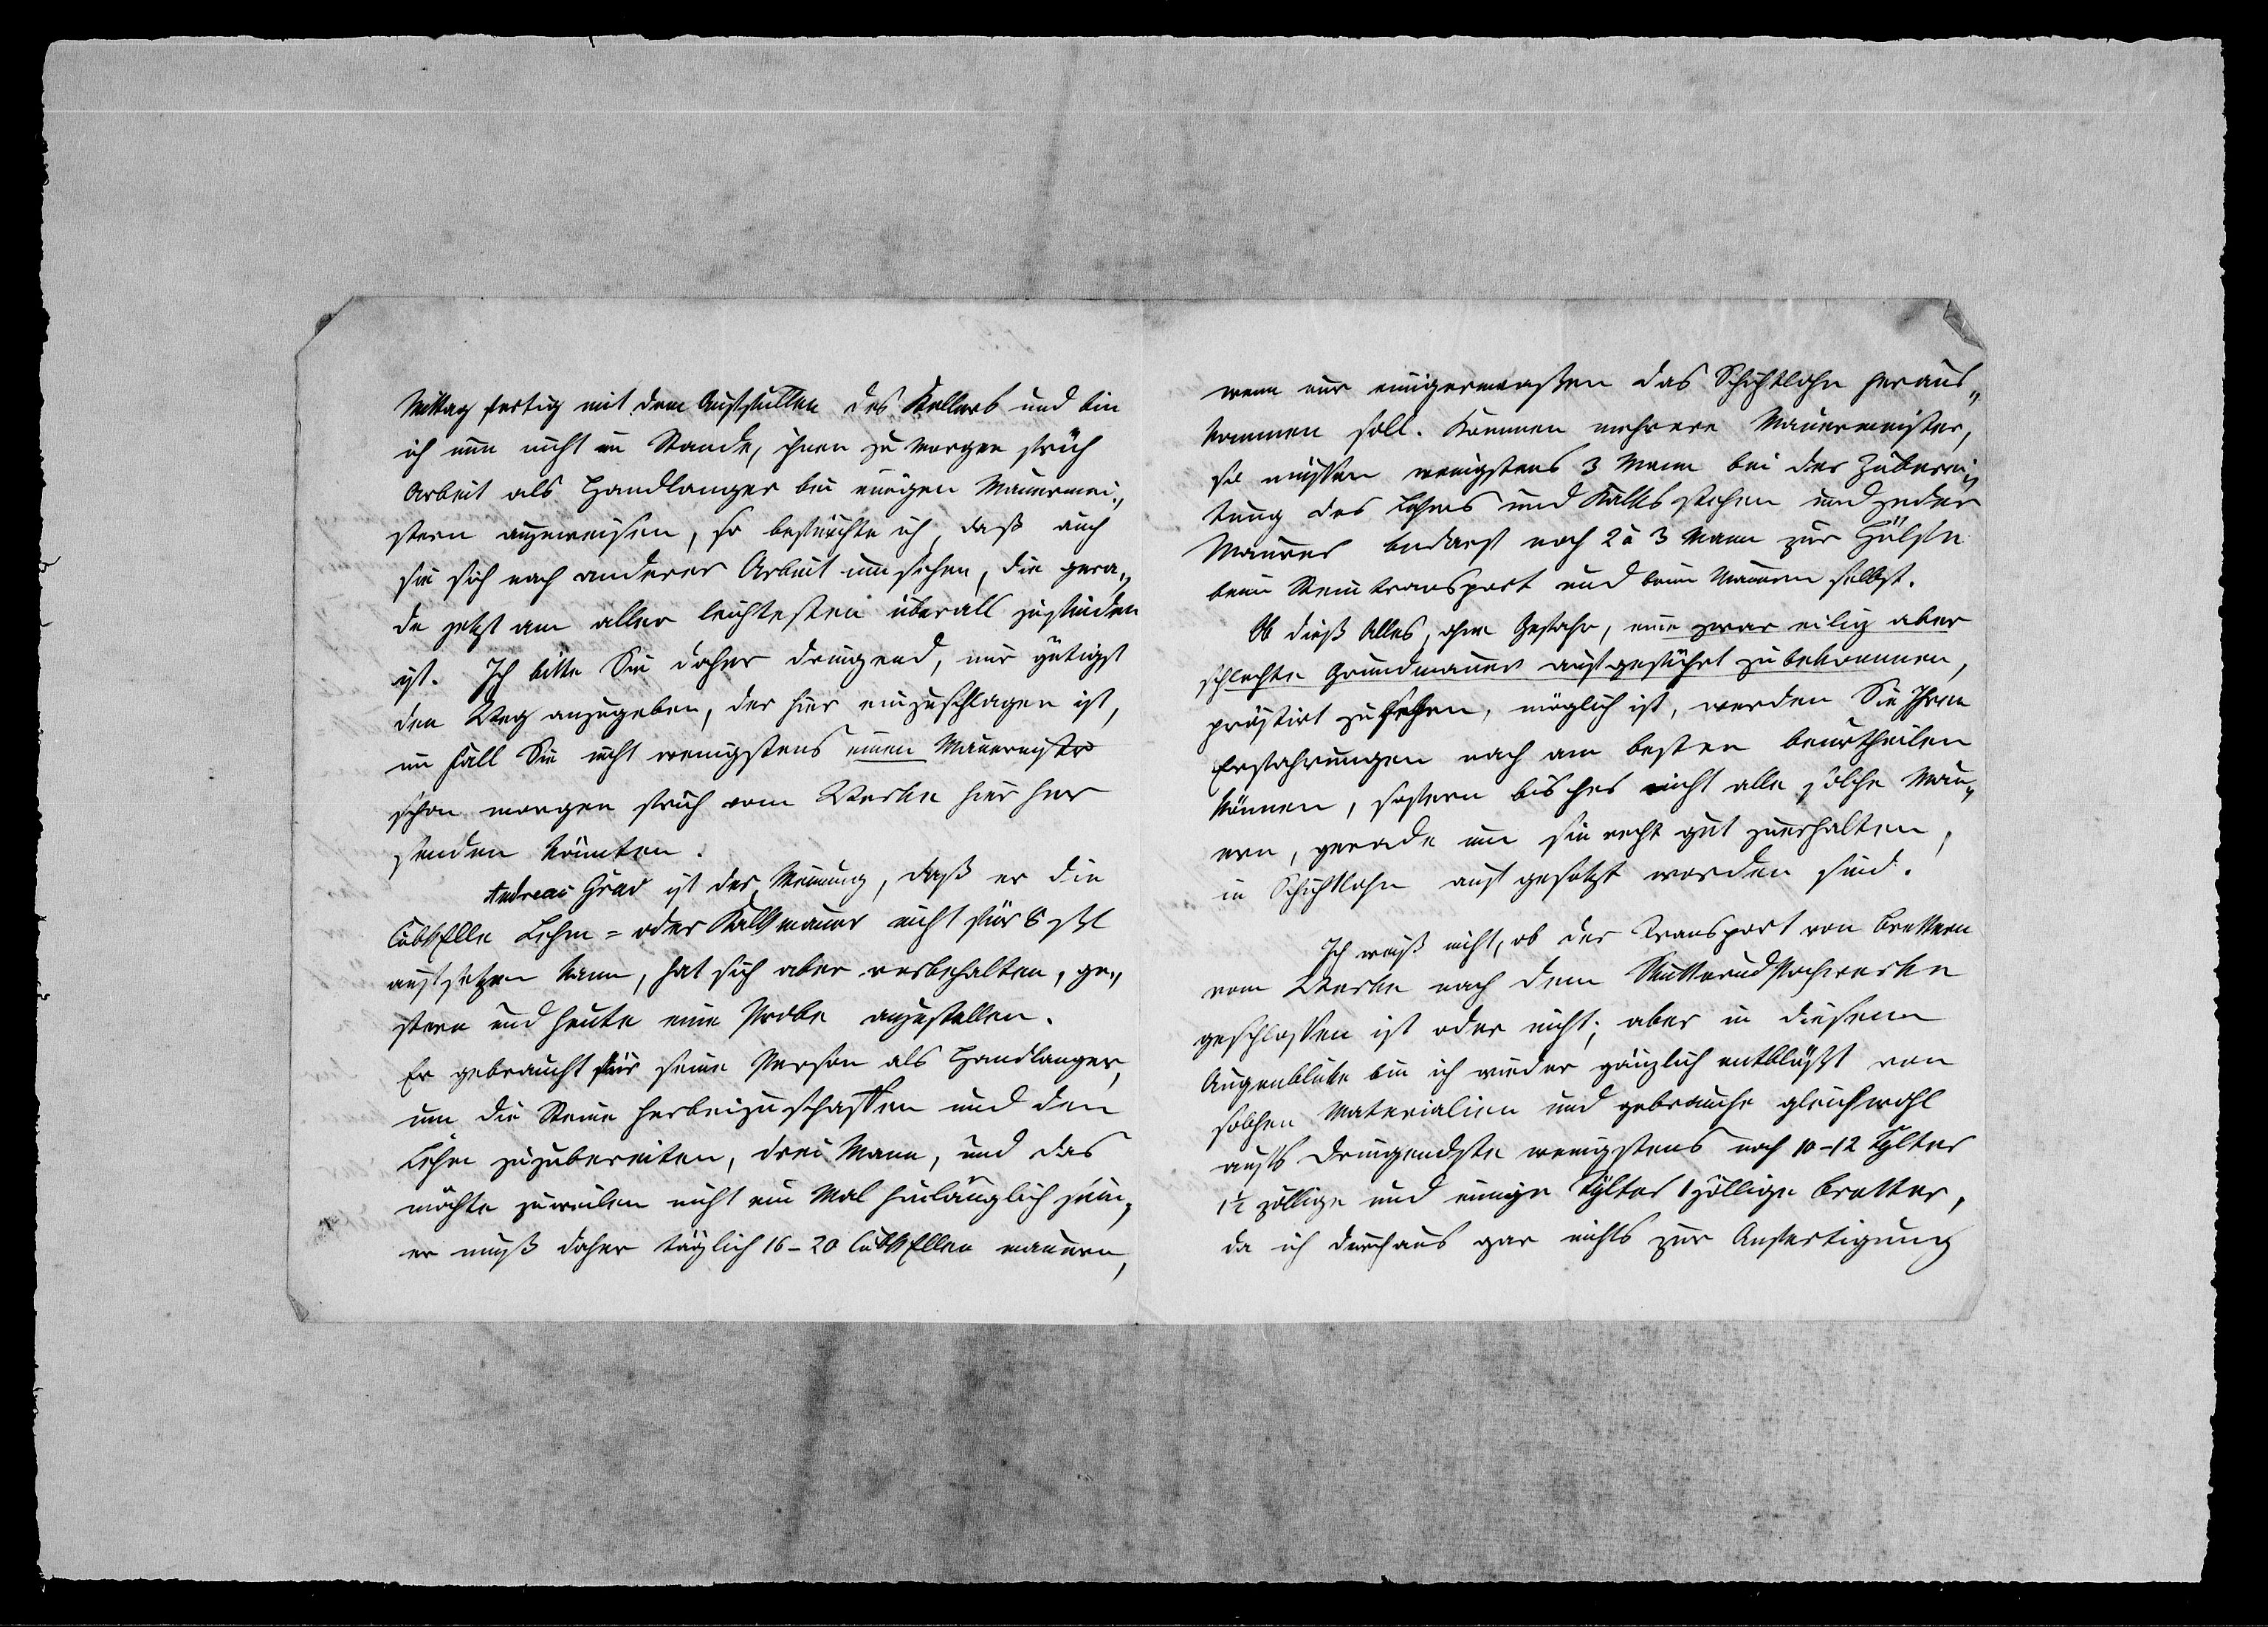 Mittag fertig mit dem Ausfüllen des Kellers und bin
ich nun nicht im Stande, ihnen zu morgen früh
Arbeit als Handlanger bei einigen Mauermei„
stern anzuweisen, so befürchte ich, daß auch
sie sich nach anderer Arbeit umsehen, die gera„
de jetzt am aller leichtesten überall zu finden
ist. Ich bitte Sie daher dringend, mir gütigst
den Weg anzugeben, der hier einzuschlagen ist,
im Fall Sie nicht wenigstens einen Mauermstr
schon morgen früh vom Werke hier her
senden könnten.
Andreas Grav ist der Meinung, daß er die
CubkElle Lehm= oder Kalkmauer nicht für 8 ßl
aufsetzen kann, hat sich aber vorbehalten, ge„
stern und heute eine Probe anzustellen.
Er gebraucht für seine Person als Handlanger,
um die Steine herbeizuschaffen und den
Lehm zuzubereiten, drei Mann, und das
möchte zuweilen nicht ein Mal hinlänglich sein,
er muß daher täglich 16-20 CubkEllen mauern,
wenn nur einigermaaßen das Schichtlohn heraus„
kommen soll. Kommen mehrere Mauermeister,
so müssen wenigstens 3 Mann bei der Zuberei„
tung des Lehms und Kalks stehen und jeder
Maurer bedarf noch 2 à 3 Mann zur Hülfe
beim Steintransport und beim Mauern selbst.
Ob dieß Alles, ohne Gefahr, eine zwar eilig aber
schlechte Grundmauer aufgeführt zu bekommen,
prästirt zu sehen, möglich ist, werden Sie Ihren
Erfahrungen nach am besten beurtheilen
können, sofern bisher nicht alle solche Mau„
ern, gerade um sie recht gut zu erhalten,
in Schichtlohn aufgesetzt worden sind.
Ich weiß nicht, ob der Transport von Brettern
vom Werke nach dem Skutterudpochwerke
geschlossen ist oder nicht; aber in diesem
Augenblicke bin ich wieder gänzlich entblößt von
solchen Materialien und gebrauche gleichwohl
aufs dringendste wenigstens noch 10-12 Tylter
1½ zöllige und einige Tylter 1 zöllige Bretter,
da ich durchaus gar nichts zur Anfertigung